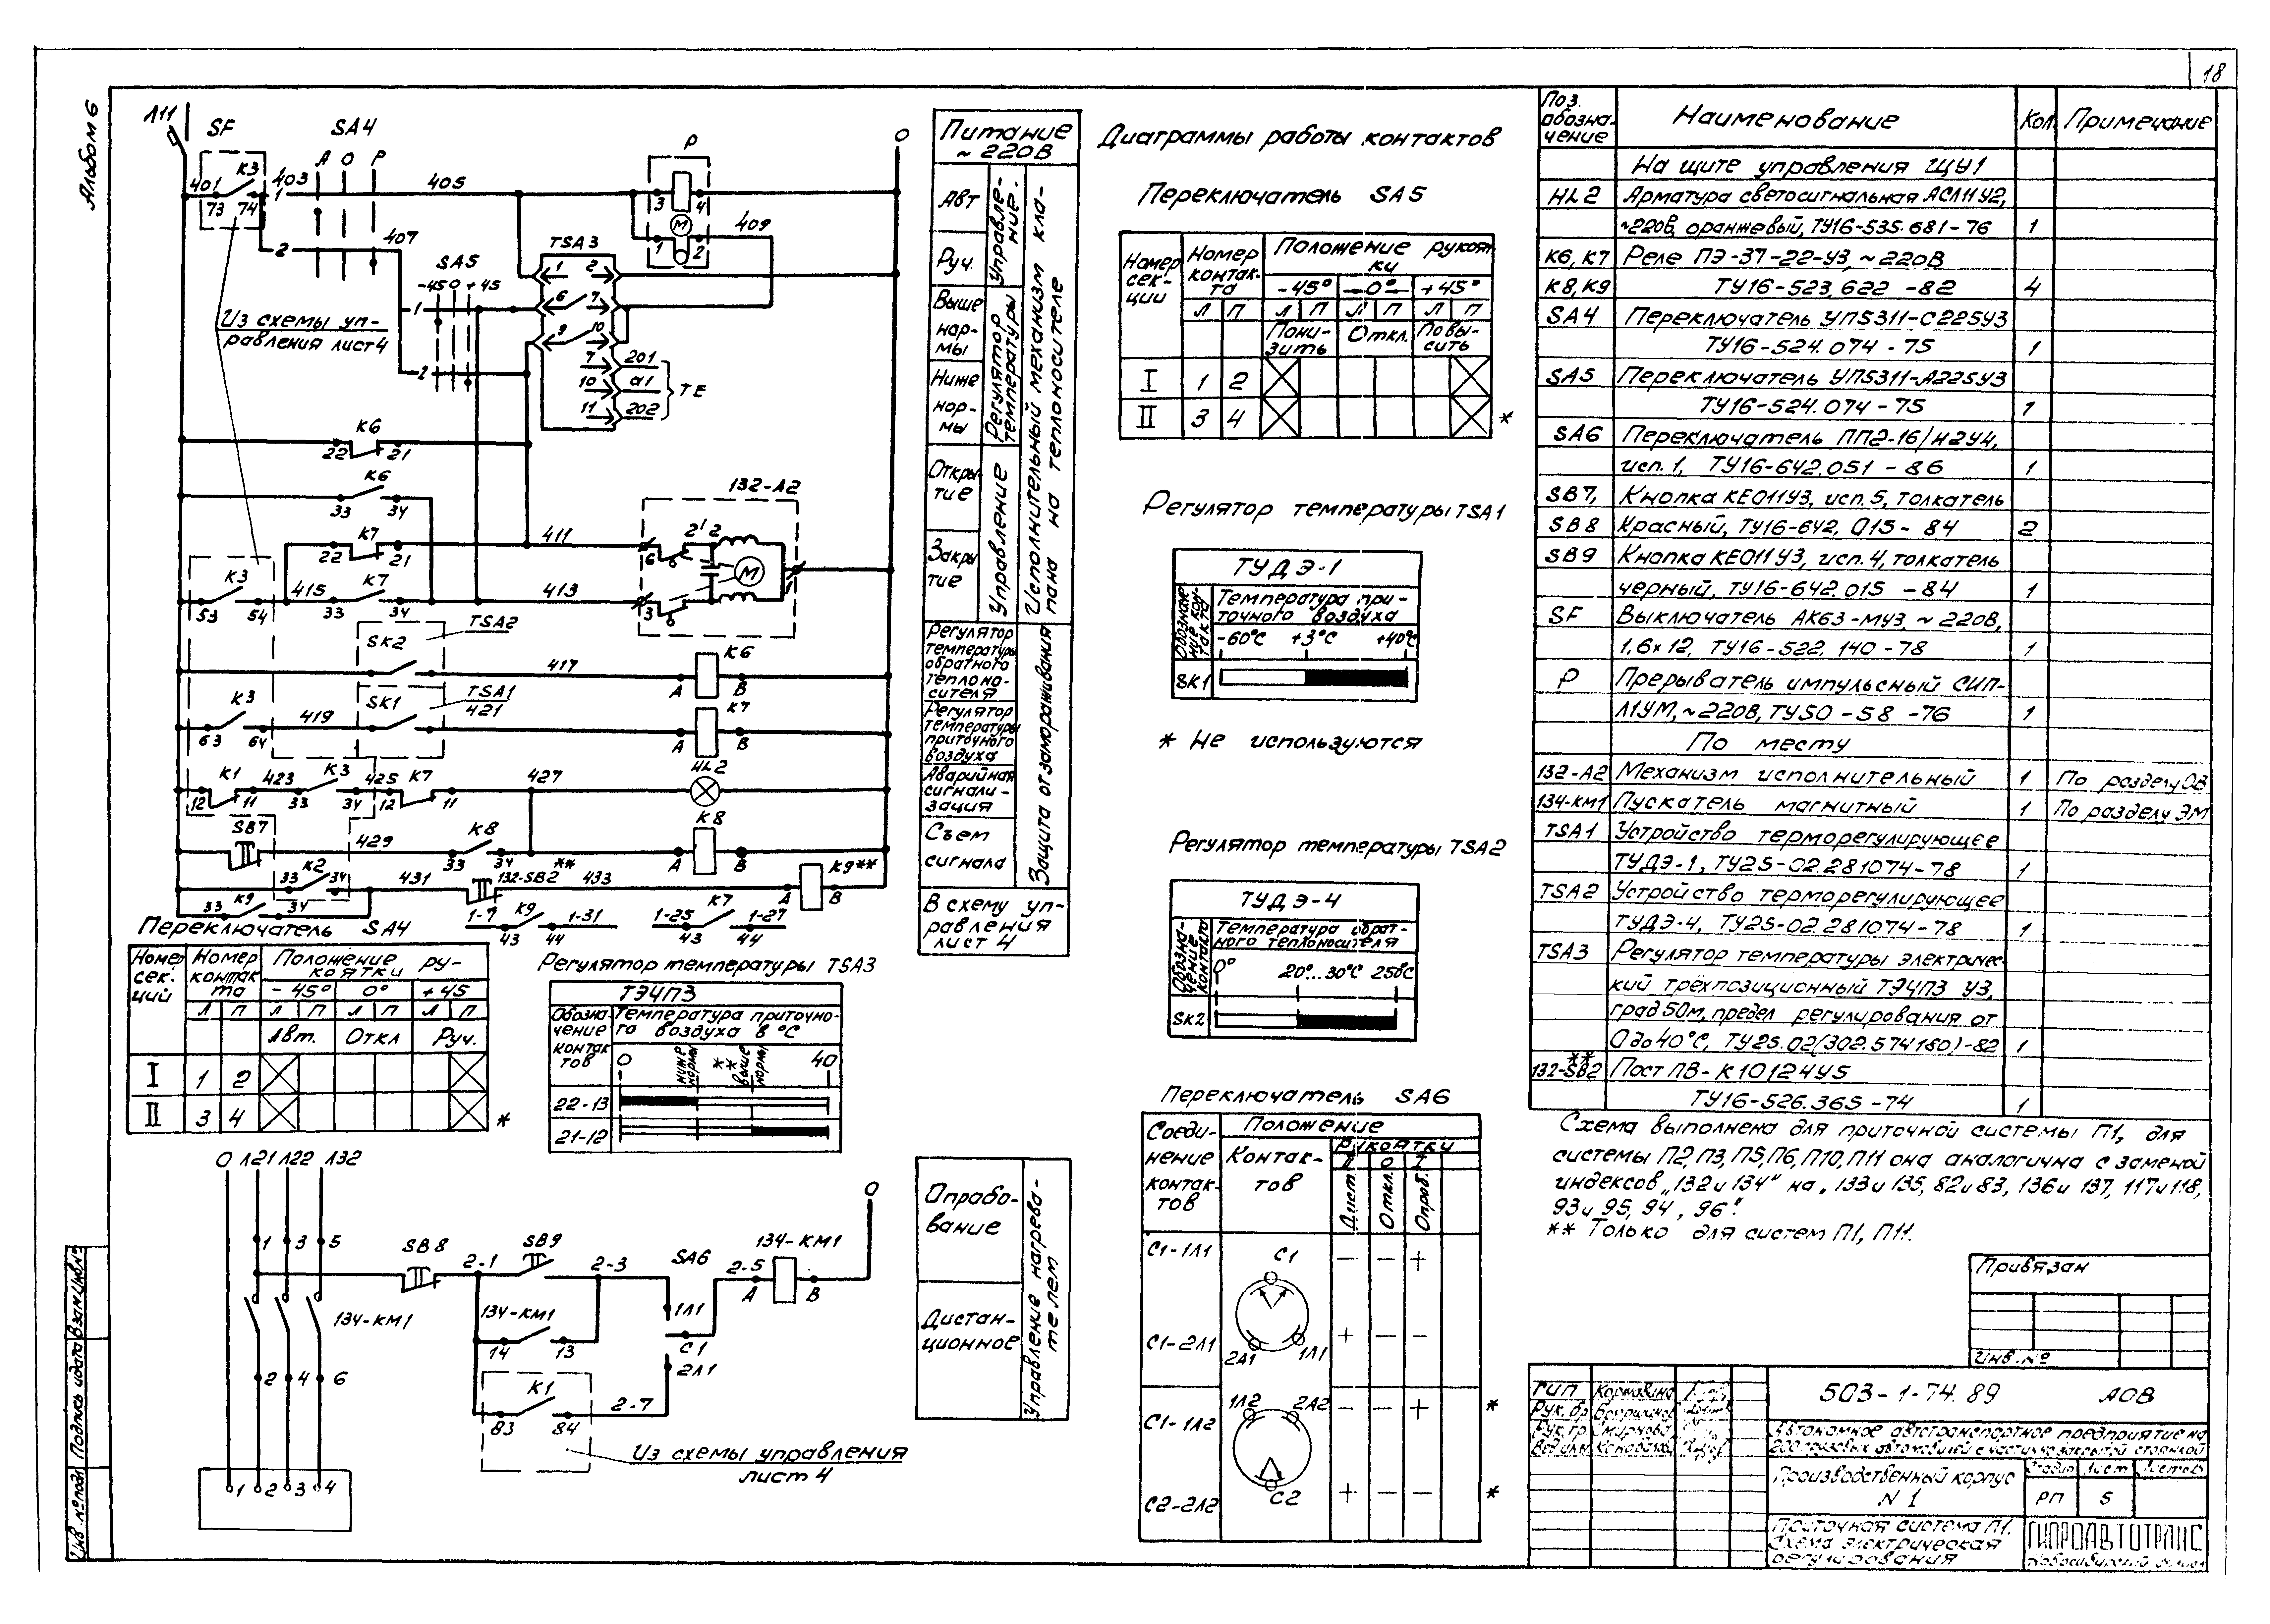 18
Альбом 6
Л11
SF
SA4
А О Р
К3
401
73 74
403
1
405
2
407
Р
3 4
М
1 2
409
О
SA5
-45 0 +45
1
2
TSA3
1 2
6 7
9 10
7 201
10 а1
11 202
ТЕ
Из схемы уп-
равления лист 4
К6
22 21
К6
33 34
К7
22 21
411
132-А2
6 2' 2
М
1
3
К3
53 54
415
К7
33 34
413
TSA2
SK2
417
К6
А В
TSA1
SK1
421
К3
63 64
419
К7
А В
К1
12 11
423
К3
33 34
425
К7
12 11
427
HL2
SB7
429
К8
33 34
К8
А В
К2
33 34
431
**
132-SB2
433
К9**
А В
К9
33 34
1-7 К9 1-31
43 44
1-25 К7 1-27
43 44
Питание
~220В
Авт
Руч.
Управле-
ние.
Выше
нар-
мы
Ниже
нор-
мы
Регулятор
температуры
Откры-
тие
Закры
тие
Управление
Исполнительный механизм кла-
пана на теплоносителе
Регулятор
температуры
обратного
теплоно-
сителя
Регулятор
температуры
приточного
воздуха
Аварийная
сигнали-
зация
Съем
сигнала
Защита от замораживания
В схему уп-
равления
лист 4
Переключатель SA4
Номер
сек-
ций
Номер
контак
та
Положение ру-
коятки
-45° 0° +45
Л П Л П Л П Л П
Авт. Откл Руч.
I 1 2
II 3 4 *
Регулятор температуры TSA3
ТЭ4П3
Обозна-
чение
контак
тов
Температура приточно-
го воздуха в °С
0 ниже нормы ** выше нормы 40
22-13
21-12
О Л21 Л22 Л32
1 3 5
134-КМ1
2 4 6
1 2 3 4
SB8
2-1
SB9
2-3
SA6
1Л1
С1
2Л1
2-5
134-КМ1
А В
О
134-КМ1
14 13
К1
83 84
2-7
Из схемы управления
лист 4
Опробо-
вание
Дистан-
ционное
Управление нагрева-
телем
Диаграммы работы контактов
Переключатель SA5
Номер
сек-
ции
Номер
контак-
та
Положение рукоят
ки
-45° 0° +45°
Л П Л П Л П Л П
Пони-
зить
Откл.
Повы-
сить
I 1 2
II 3 4 *
Регулятор температуры TSA1
ТУДЭ-1
Обозначе
ние кон-
такта
Температура при-
точного воздуха
-60°С +3°С +40°С
SK1
* Не используются
Регулятор температуры TSA2
ТУДЭ-4
Обозна-
чение
контакта
Температура обрат-
ного теплоносителя
0° 20°...30°С 250С
SK2
Переключатель SA6
Соеди-
нение
контак-
тов
Контак-
тов
Положение
рукоятки
Дист. Откл. Опроб.
С1-1Л1 С1 — — +
С1-2Л1 2Л1 1Л1 + — —
С1-1Л2 1Л2 2Л2 — — + *
С2-2Л2 С2 + — — *
Поз.
обозна-
чение
Наименование
Кол.
Примечание
На щите управления ЩУ1
HL2 Арматура светосигнальная АСЛ11У2,
~220В, оранжевый, ТУ16-535.681-76 1
К6, К7 Реле ПЭ-37-22-У3, ~220В
К8, К9 ТУ16-523.622-82 4
SA4 Переключатель УП5311-С225У3
ТУ16-524.074-75 1
SA5 Переключатель УП5311-А225У3
ТУ16-524.074-75 1
SA6 Переключатель ПП2-16/Н2У4,
исп.1, ТУ16-642.051-86 1
SB7, Кнопка КЕ011У3, исп.5, толкатель
SB8 Красный, ТУ16-642.015-84 2
SB9 Кнопка КЕ011У3, исп.4, толкатель
черный, ТУ16-642.015-84 1
SF Выключатель АК63-МУ3, ~220В,
1,6×12, ТУ16-522.140-78 1
Р Прерыватель импульсный СИП-
Л1УМ, ~220В, ТУ50-58-76 1
По месту
132-А2 Механизм исполнительный 1 По разделу ОВ
134-КМ1 Пускатель магнитный 1 По разделу ЭМ
TSA1 Устройство терморегулирующее
ТУДЭ-1, ТУ25-02.281074-78 1
TSA2 Устройство терморегулирующее
ТУДЭ-4, ТУ25-02.281074-78 1
TSA3 Регулятор температуры электричес-
кий трёхпозиционный ТЭ4П3 У3,
град 50м, предел регулирования от
0 до 40°С, ТУ25.02(302.574180)-82 1
**
132-SB2 Пост ПВ-К10124У5
ТУ16-526.365-74 1
Схема выполнена для приточной системы П1, для
системы П2, П3, П5, П6, П10, П11 она аналогична с заменой
индексов „132 и 134" на „133 и 135, 82 и 83, 136 и 137, 117 и 118,
93 и 95, 94, 96".
** Только для систем П1, П11.
Привязан
Инв. №
ГИП
Рук. бр.
Рук. гр. Смирнова
Вед. инж. Коновалова
503-1-74.89 АОВ
Автономное автотранспортное предприятие на
200 грузовых автомобилей с частично закрытой стоянкой
Производственный корпус
N 1
Стадия Лист Листов
РП 5
Приточная система П1.
Схема электрическая
регулирования
ГИПРОАВТОТРАНС
Новосибирский филиал
Инв. № подл. Подпись и дата Взам. инв. №